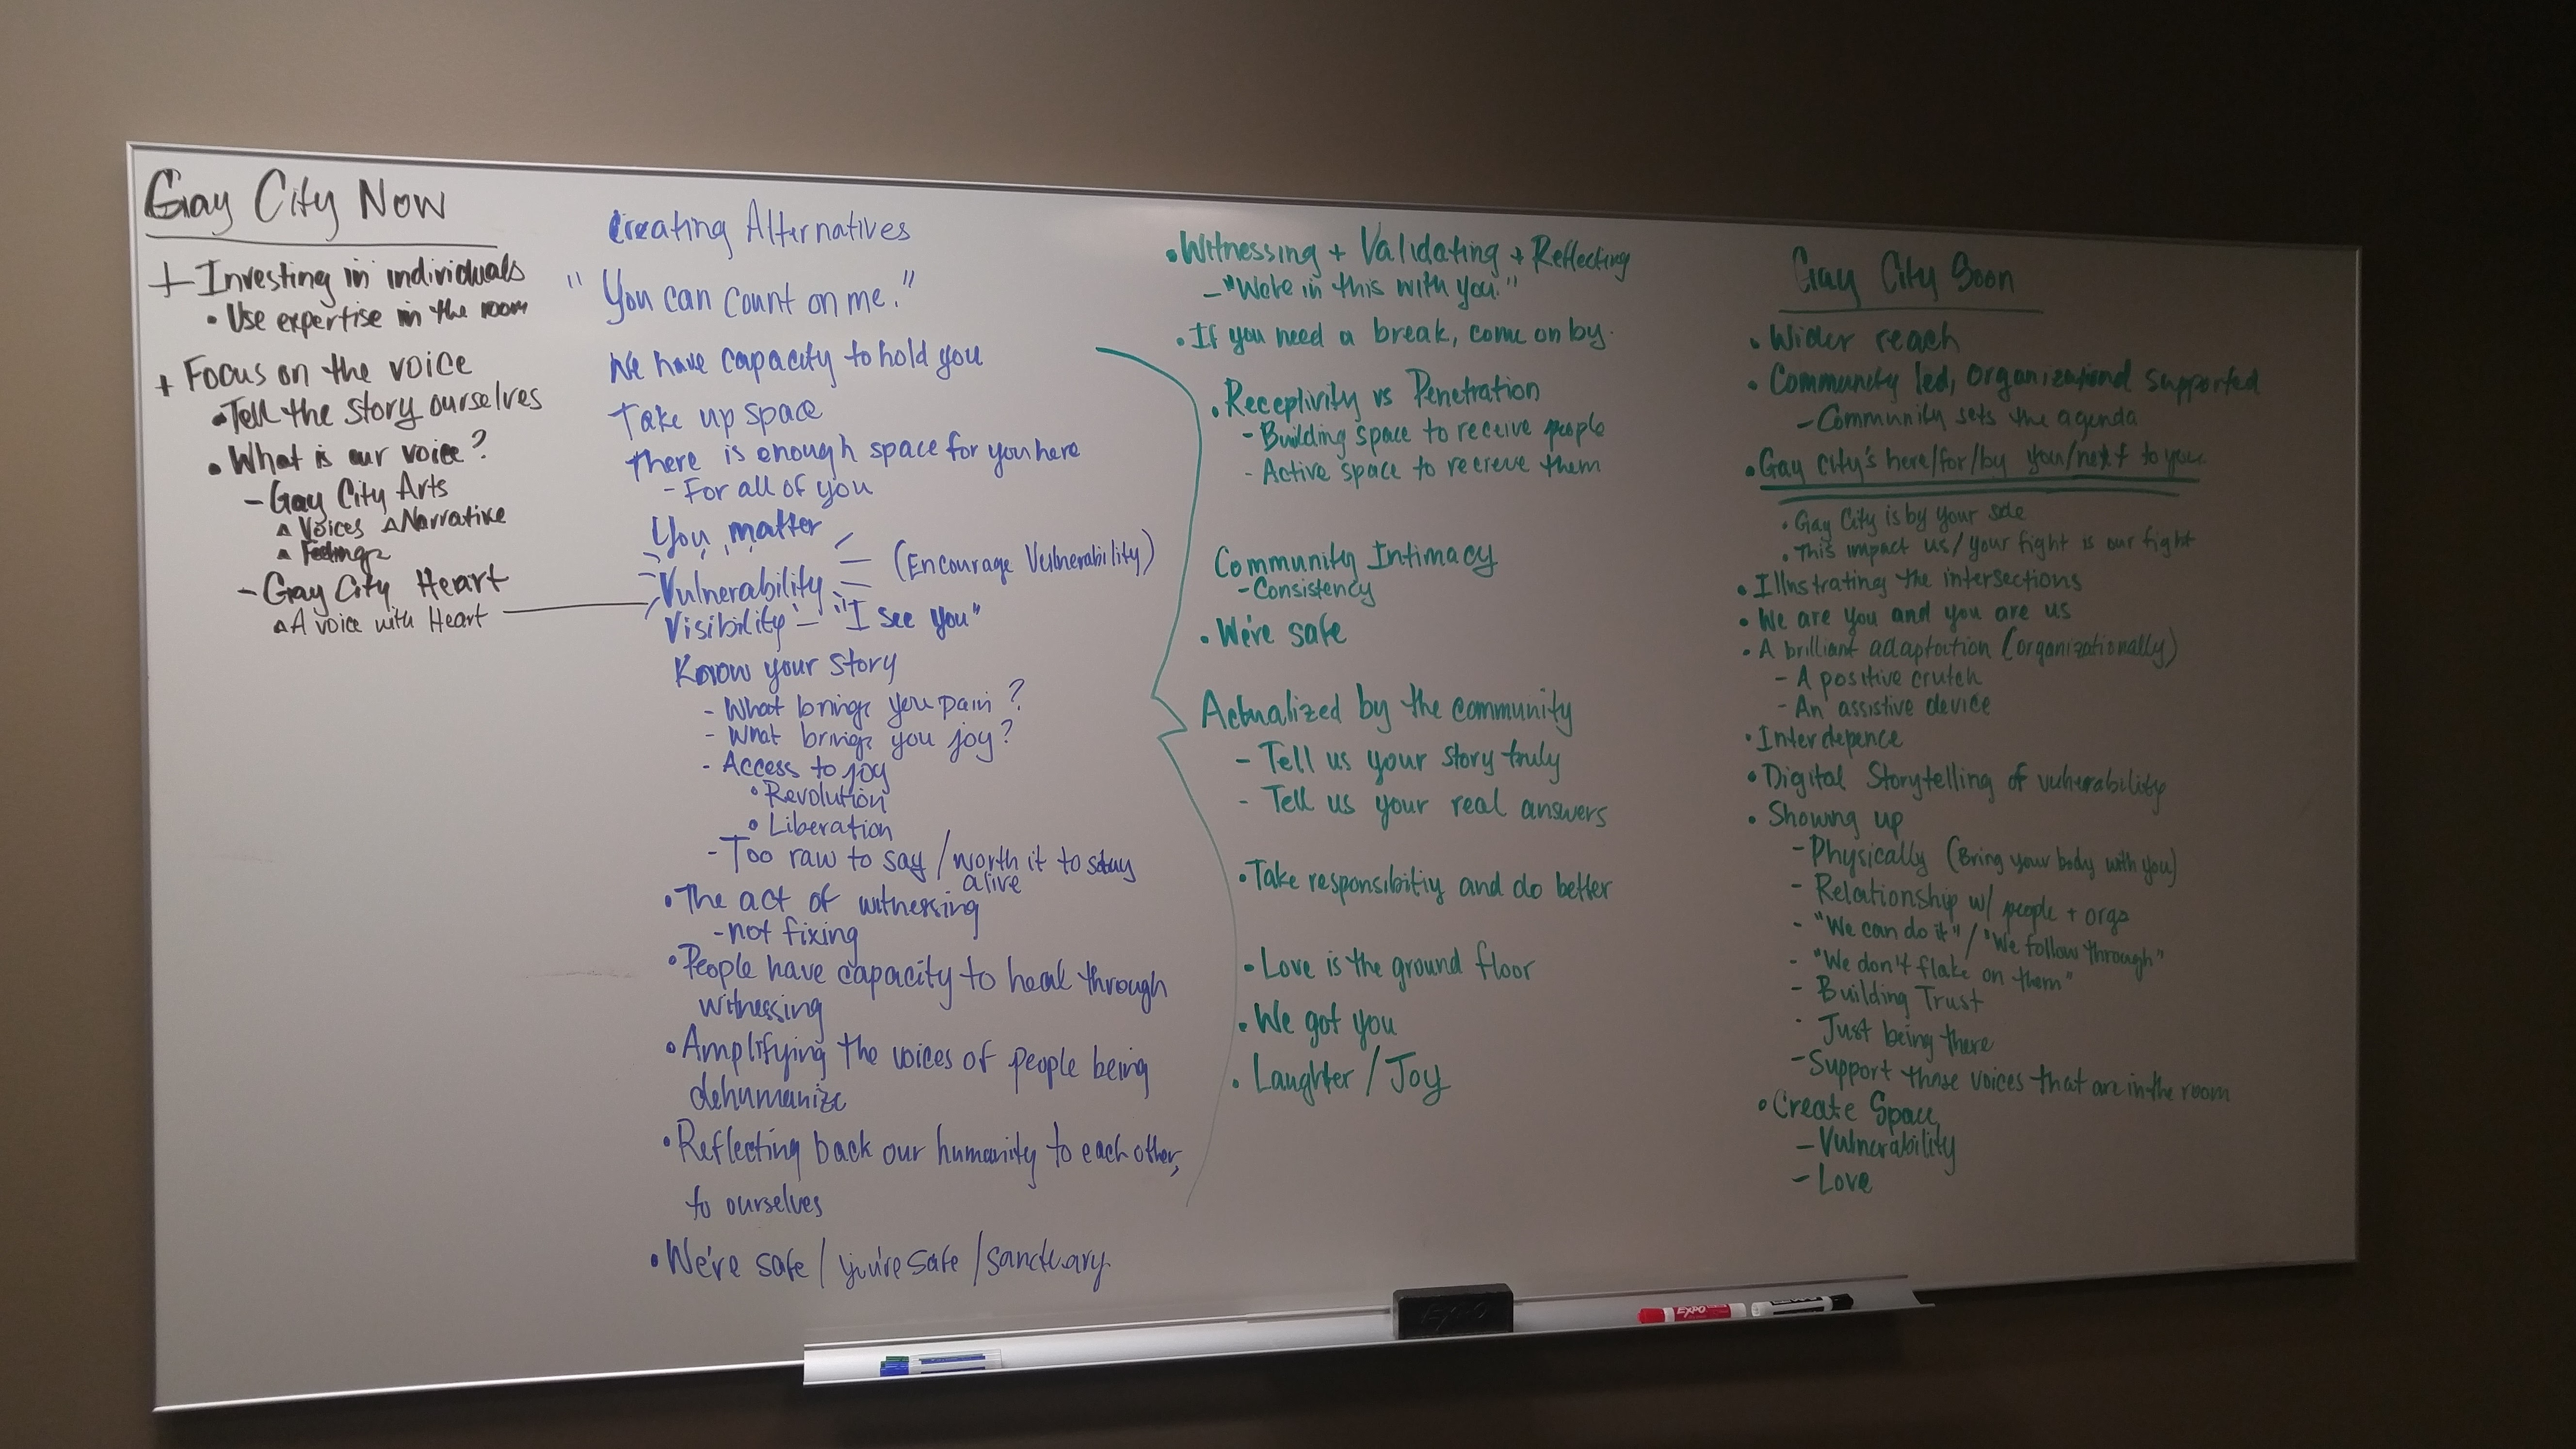 Gay City Now
+ Investing in individuals
• Use expertise in the room
+ Focus on the voice
• Tell the story ourselves
• What is our voice?
- Gay City Arts
△ Voices △ Narrative
△ Feelings
- Gay City Heart
△ A voice with Heart
Creating Alternatives
"You can count on me."
We have capacity to hold you
Take up space
There is enough space for you here
- For all of you
You matter
Vulnerability (Encourage Vulnerability)
Visibility - "I see you"
Know your story
- What brings you pain?
- What brings you joy?
- Access to joy
• Revolution
• Liberation
- Too raw to say / worth it to stay
alive
• The act of witnessing
- not fixing
• People have capacity to heal through
witnessing
• Amplifying the voices of people being
dehumanize
• Reflecting back our humanity to each other,
to ourselves
• We're safe / you're safe / sanctuary
• Witnessing + Validating + Reflecting
- "We're in this with you."
• If you need a break, come on by.
• Receptivity vs Penetration
- Building space to receive people
- Active space to recieve them
Community Intimacy
- Consistency
• We're safe
Actualized by the community
- Tell us your story truly
- Tell us your real answers
• Take responsibitiy and do better
• Love is the ground floor
• We got you
• Laughter / Joy
Gay City Soon
• Wider reach
• Community led, organizational supported
- Community sets the agenda
• Gay City's here/for/by you/next to you
• Gay City is by your side
• This impact us / your fight is our fight
• Illustrating the intersections
• We are you and you are us
• A brilliant adaptation (organizationally)
- A positive crutch
- An assistive device
• Interdepence
• Digital Storytelling of vulnerability
• Showing up
- Physically (Bring your body with you)
- Relationship w/ people + orgs
- "We can do it" / "We follow through"
- "We don't flake on them"
- Building Trust
- Just being there
- Support those voices that are in the room
• Create Space
- Vulnerability
- Love
EXPO
EXPO